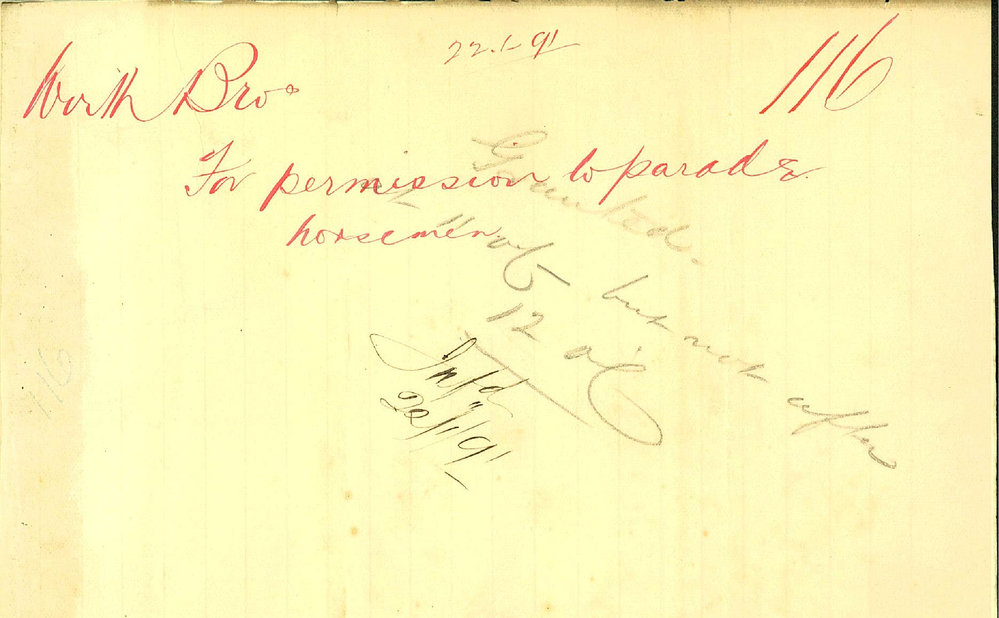 22.1.91
116
Wirth Bros
For permission to parade
horsemen
Granted.
at 11 o/c but not after
12 o/c
Infd
22/1/91
116